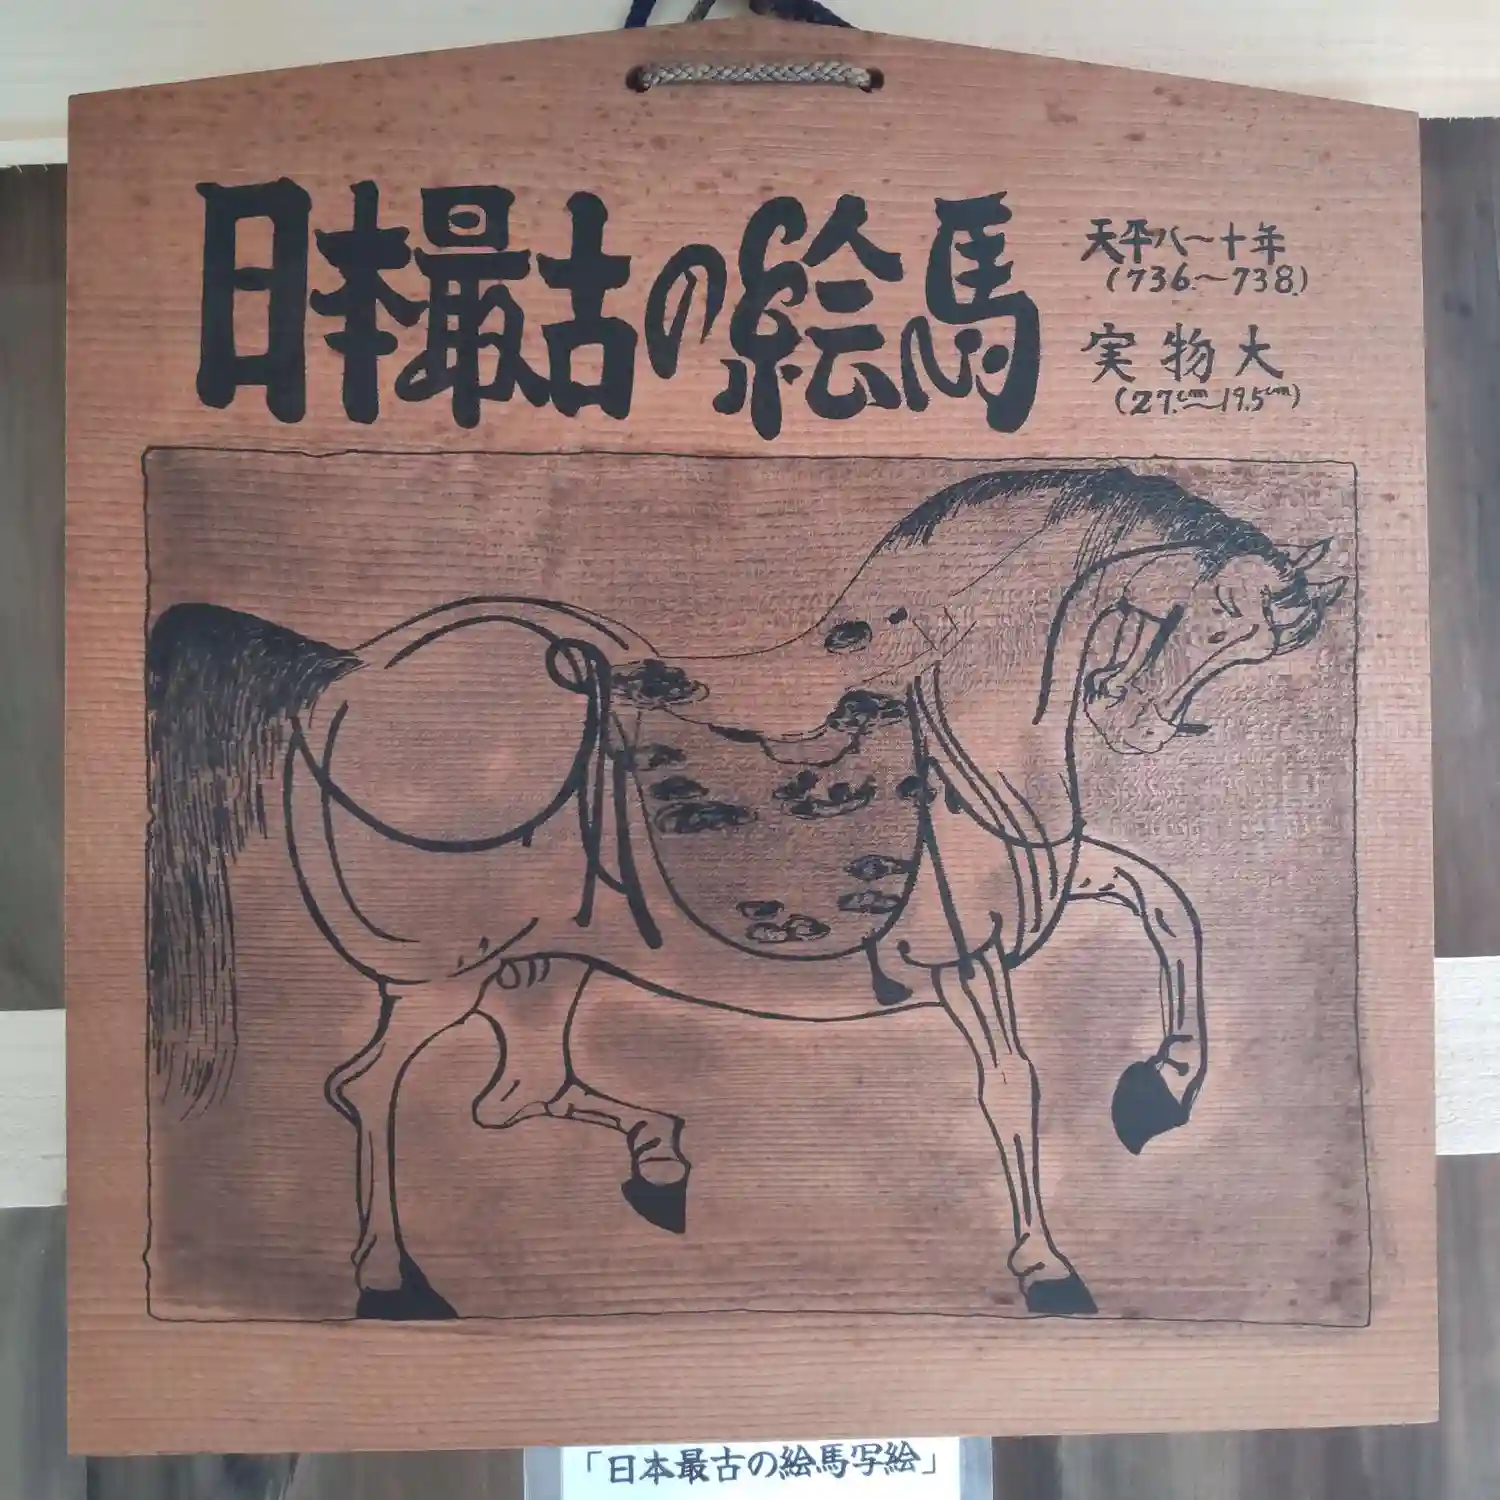 日本最古の絵馬
天平八〜十年
(736.〜738.)
実物大
(27.cm〜19.5cm)
「日本最古の絵馬写絵」